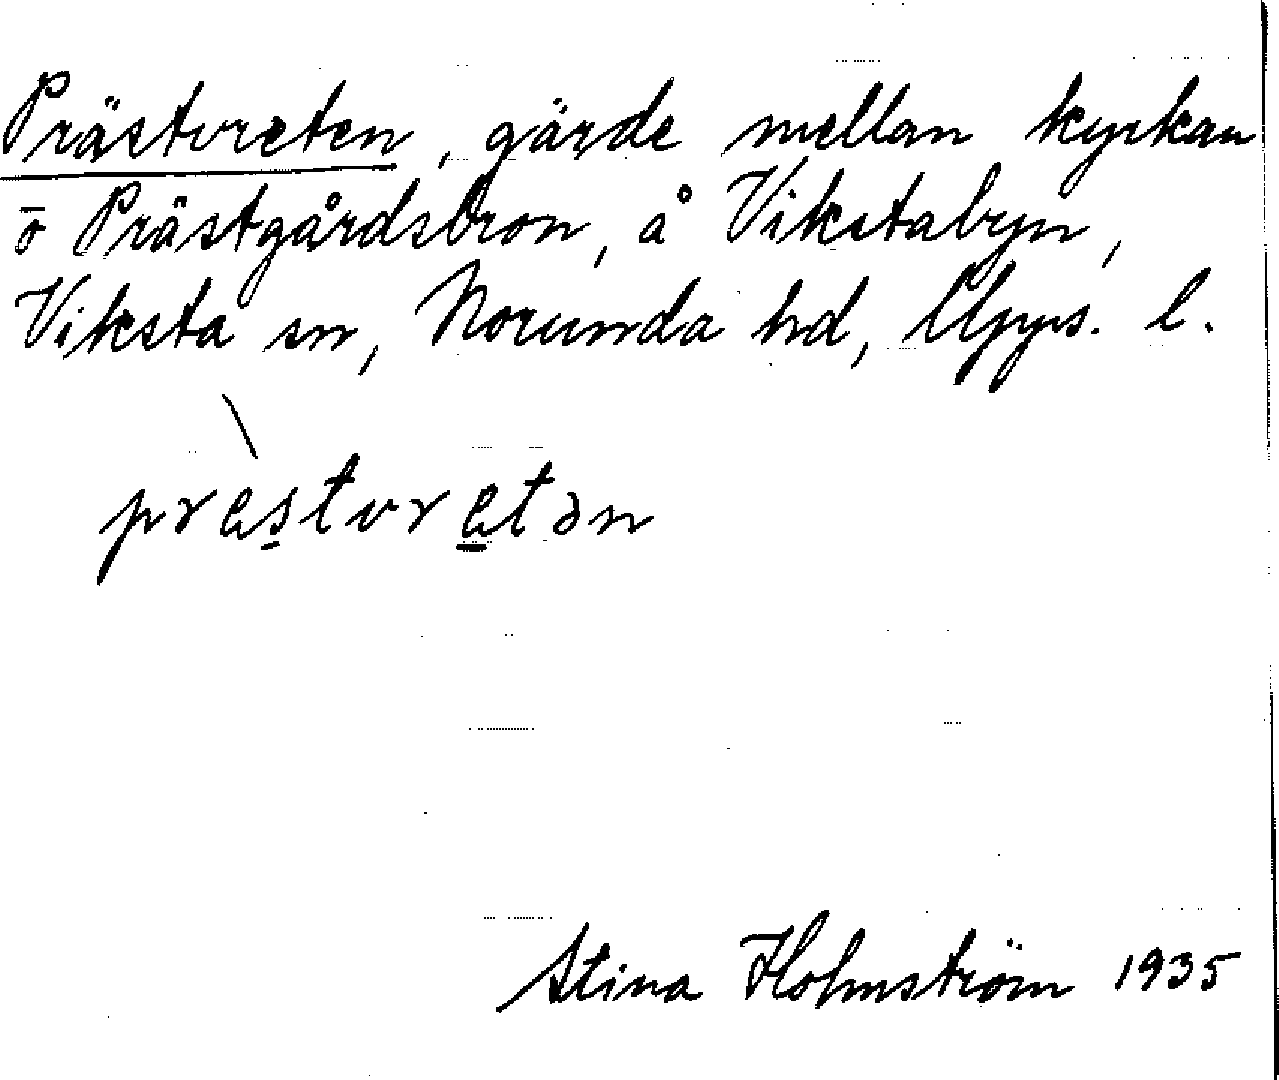 Prästvreten, gärde mellan kyrkan
o Prästgårdsbron, å Vikstabyn,
Viksta sn, Norunda hd, Upps. l.
prèstvretən
Stina Holmström 1935